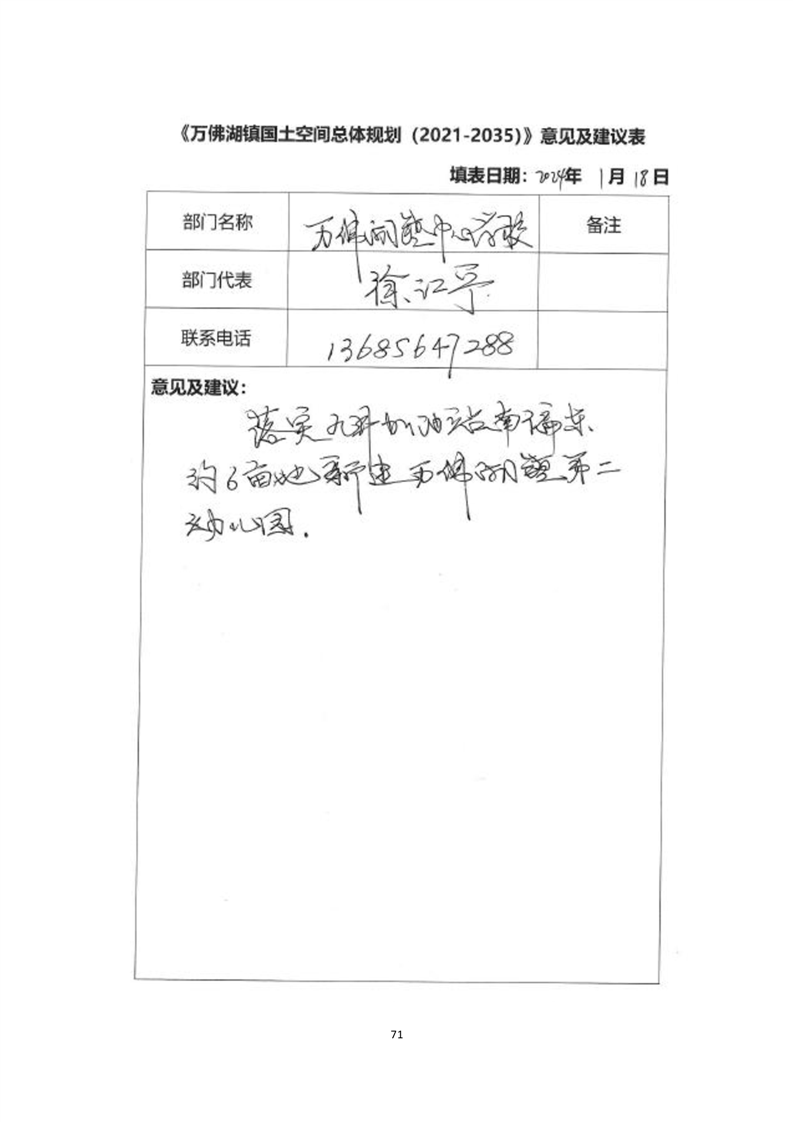 《万佛湖镇国土空间总体规划（2021-2035)》意见及建议表
填表日期：2024年 1月 18日
部门名称 万佛湖镇中心学校 备注
部门代表 徐江宁
联系电话 13685647288
意见及建议：
落实九井加油站南偏东
约6亩地新建万佛湖镇第二
幼儿园.
71